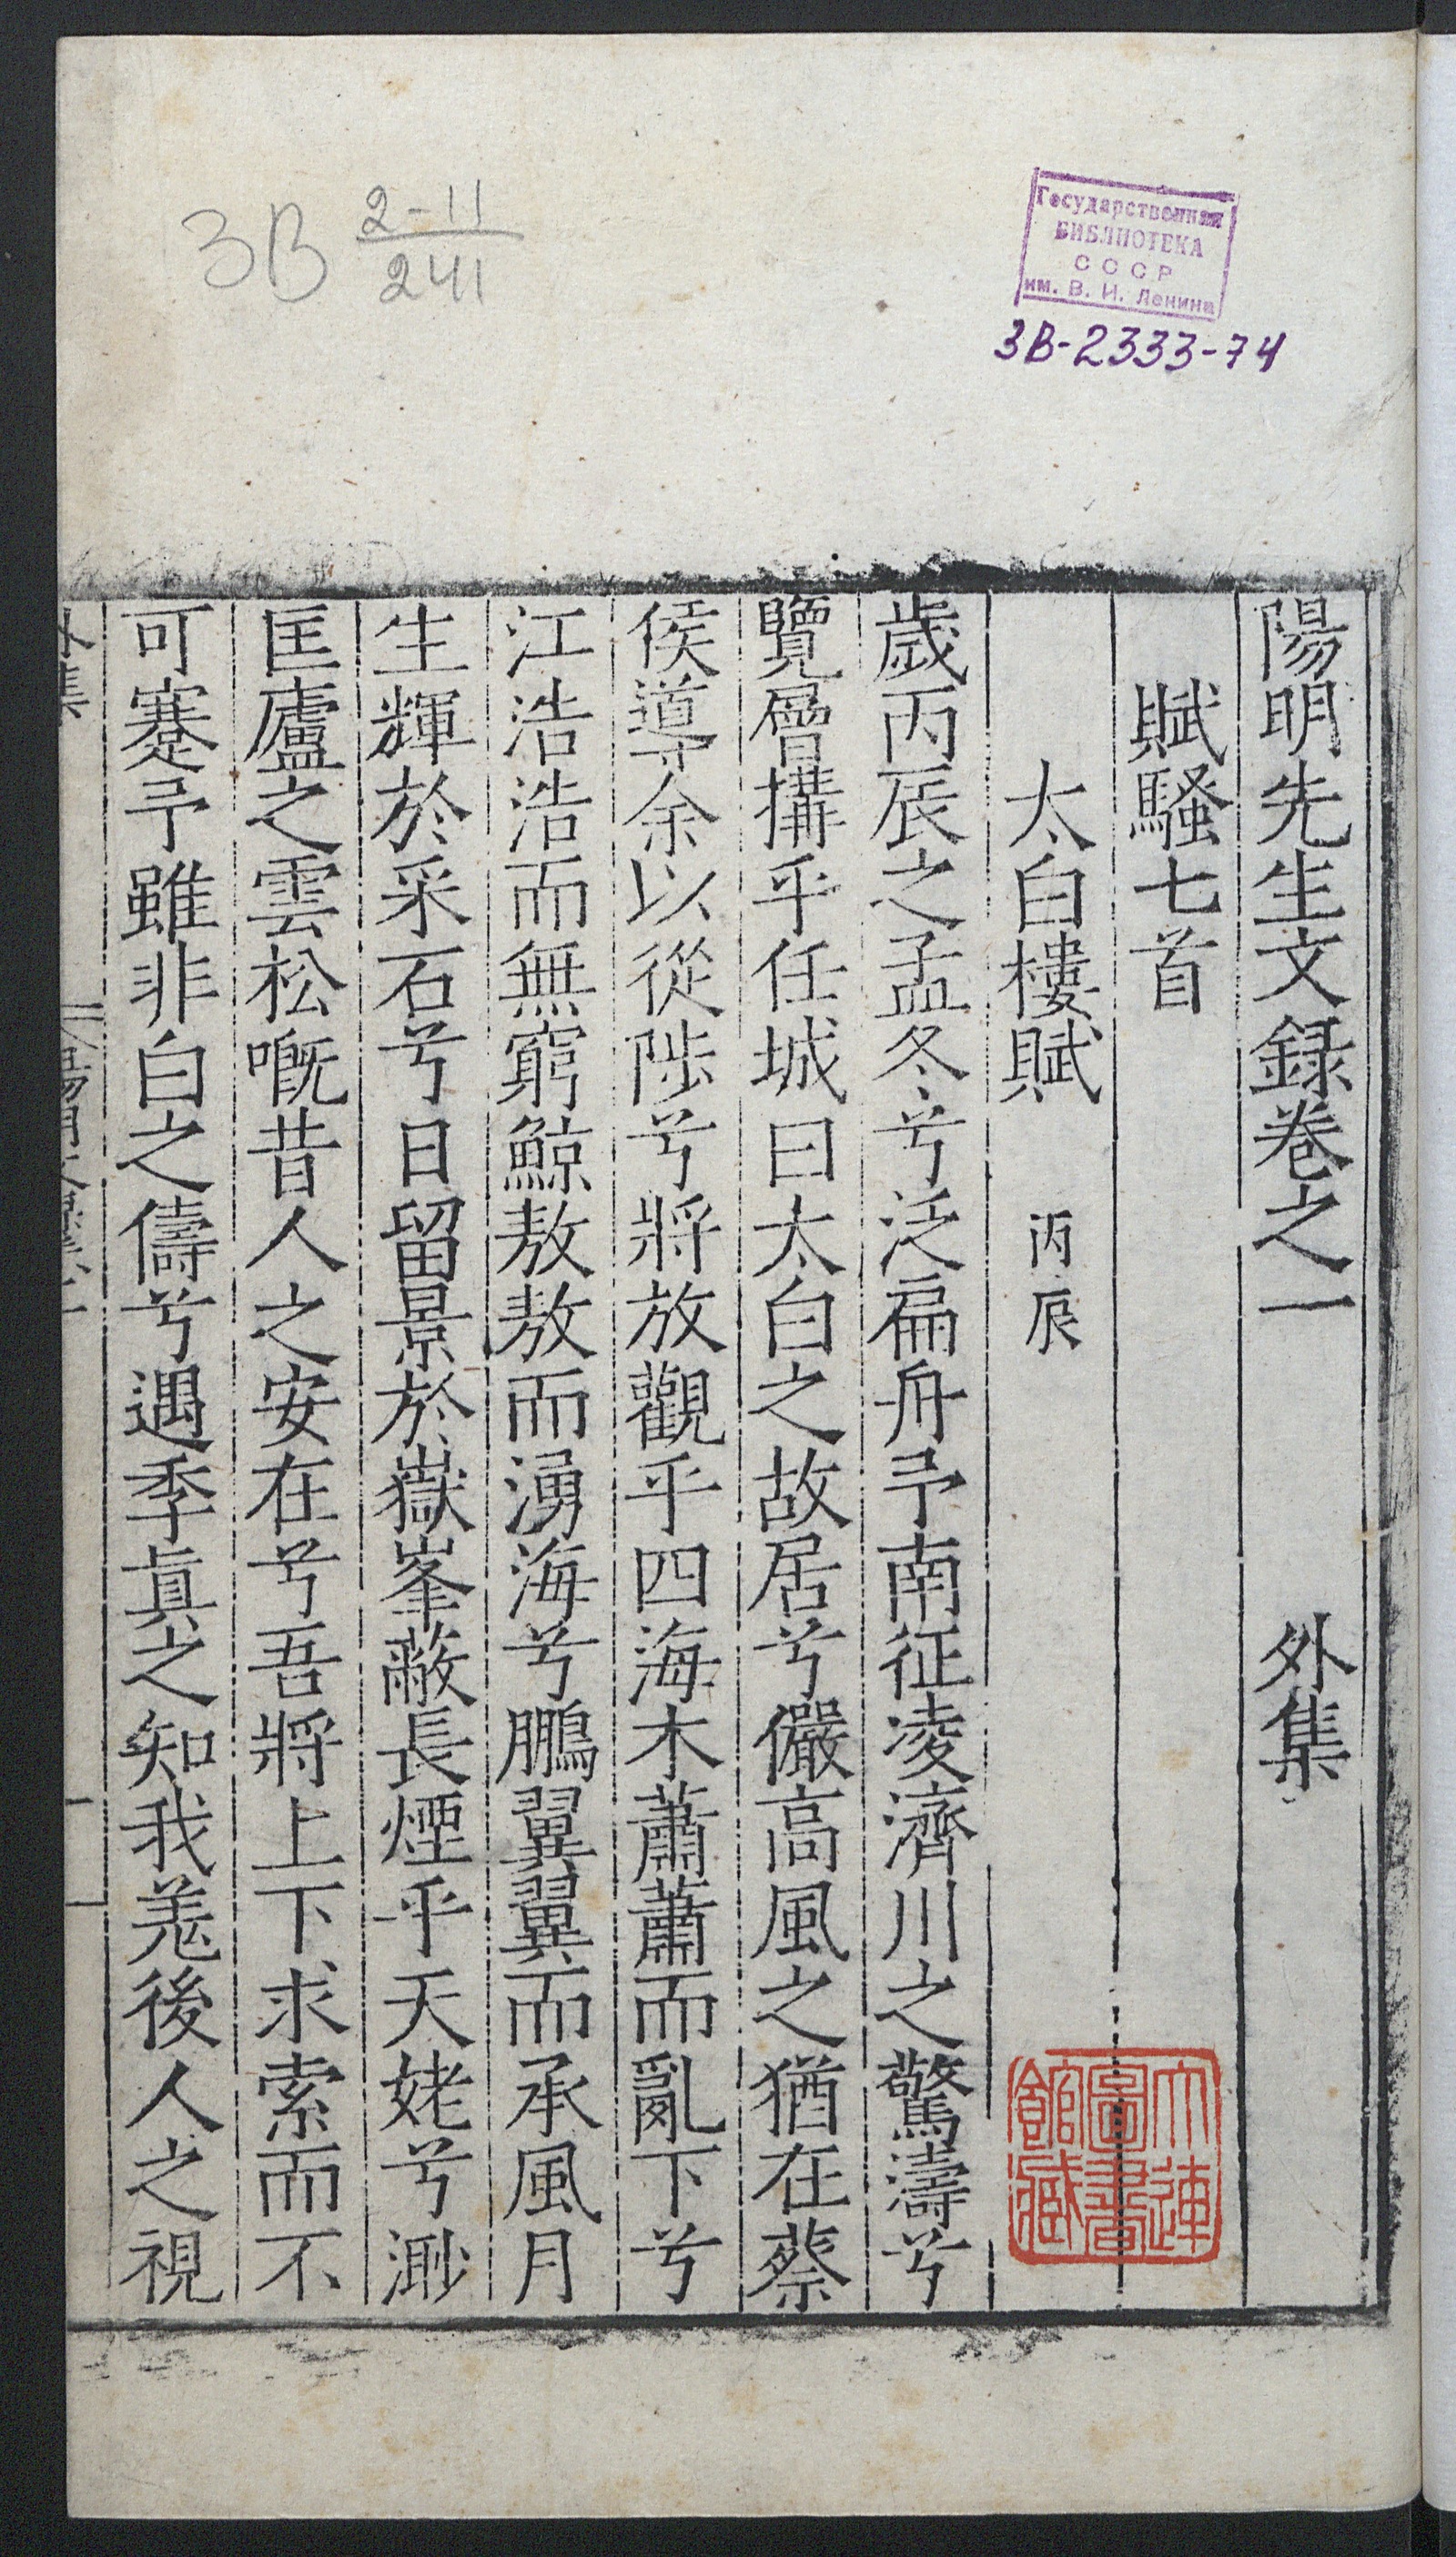 3В 2-11
241
Государственная
БИБЛИОТЕКА
СССР
им. В. И. Ленина
3В-2333-74
陽明先生文録卷之一 外集
賦騷七首
太白樓賦 丙辰
歲丙辰之孟冬兮泛扁舟予南征凌濟川之驚濤兮
覽層搆乎任城曰太白之故居兮儼高風之猶在蔡
侯導余以從陟兮將放觀乎四海木蕭蕭而亂下兮
江浩浩而無窮鯨敖敖而湧海兮鵬翼翼而承風月
生輝於采石兮日留景於嶽峯蔽長煙乎天姥兮渺
匡廬之雲松嘅昔人之安在兮吾將上下求索而不
可蹇予雖非白之儔兮遇季真之知我羗後人之視
大連
圖書
館藏
外集